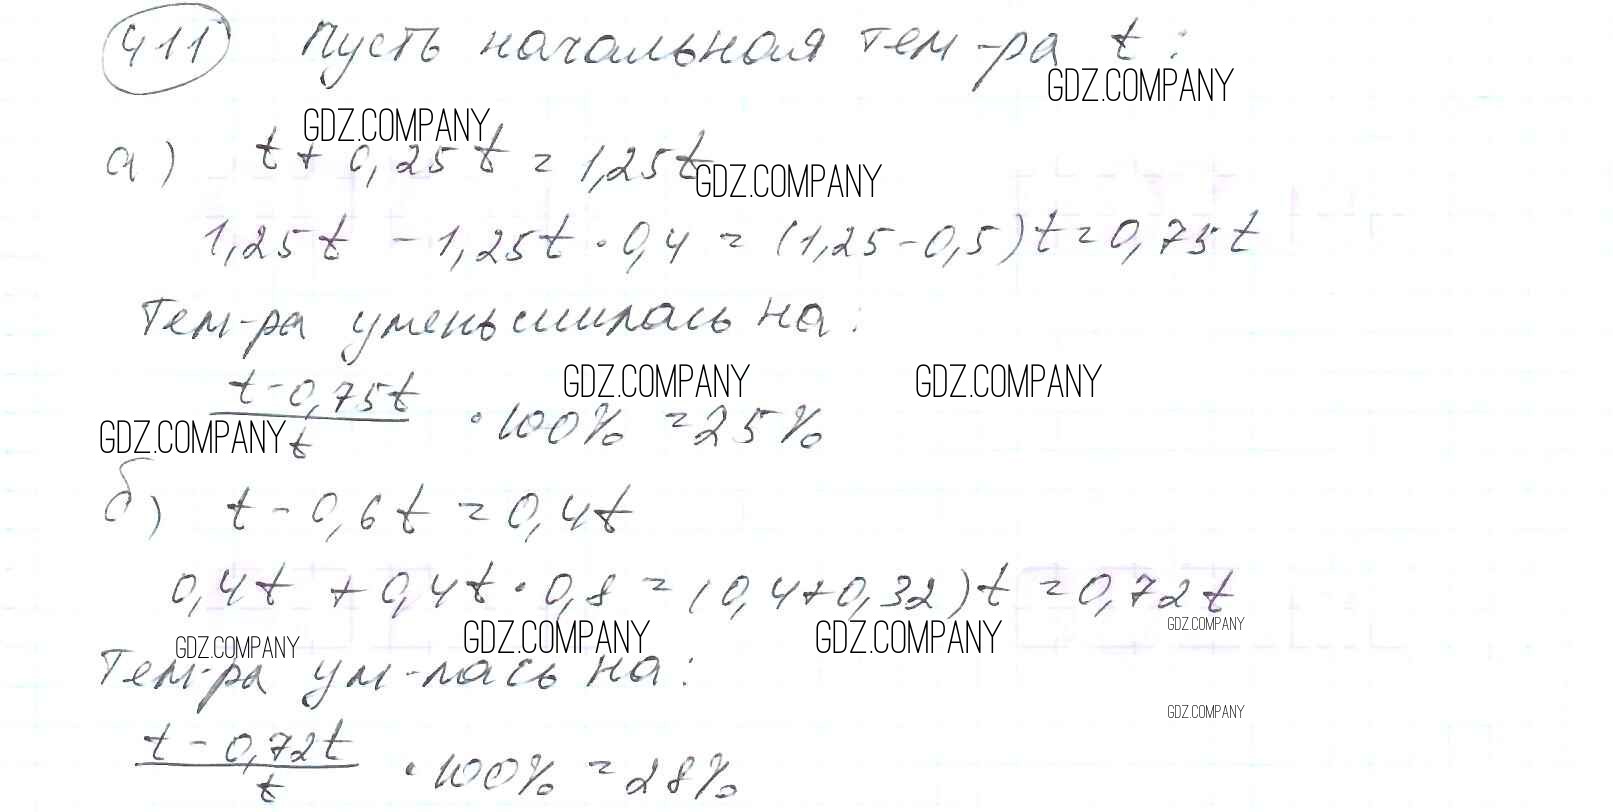 411 Пусть начальная тем-ра t:
GDZ.COMPANY
GDZ.COMPANY
а) t + 0,25t = 1,25t
GDZ.COMPANY
1,25t - 1,25t · 0,4 = (1,25-0,5)t = 0,75t
Тем-ра уменьшилась на:
GDZ.COMPANY GDZ.COMPANY
t-0,75t / t · 100% = 25%
GDZ.COMPANY
б) t - 0,6t = 0,4t
0,4t + 0,4t · 0,8 = (0,4+0,32)t = 0,72t
GDZ.COMPANY GDZ.COMPANY GDZ.COMPANY GDZ.COMPANY
Тем-ра ум-лась на:
GDZ.COMPANY
t - 0,72t / t · 100% = 28%